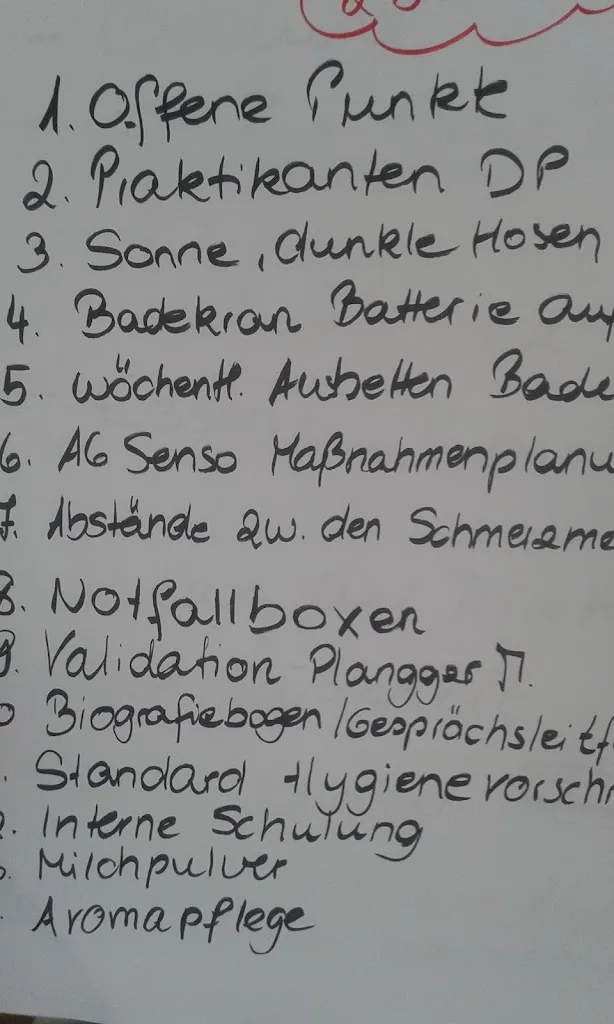 1. Offene Punkk
2. Praktikanten DP
3. Sonne, dunkle Hosen
4. Badekran Batterie auf
5. wöchentl. Ausbetten Bade
6. AG Senso Maßnahmenplanu
7. Abstände zw. den Schmerzme
8. Notfallboxen
9. Validation Plangger M.
0 Biografiebogen/Gesprächsleitf
. Standard Hygienevorschr
2. Interne Schulung
3. Milchpulver
. Aromapflege